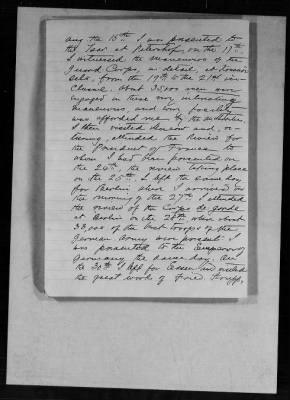 Aug the 15th. I was presented to
the Tsar at Peterhof, on the 17th.
I witnessed the maneuvers of the
Guard Corps, in detail, at Krasnoe
Selo, from the 19th to the 21st in-
clusive. About 35000 men were
engaged in these very interesting
maneuvers, and every facility
was afforded me by the authorities.
I then visited Moscow and, re-
turning, attended the Review for
the President of France to
whom I had been presented on
the 24th, the review taking place
on the 25th. I left the same day
for Berlin where I arrived on
the morning of the 27th. I attended
the review of the Corps de Garde
at Berlin on the 28th when about
33,000 of the best troops of the
German Army were present. I
was presented to the Emperor of
Germany the same day. On
the 30th I left for Essen and visited
the great works of Fried. Krupp,